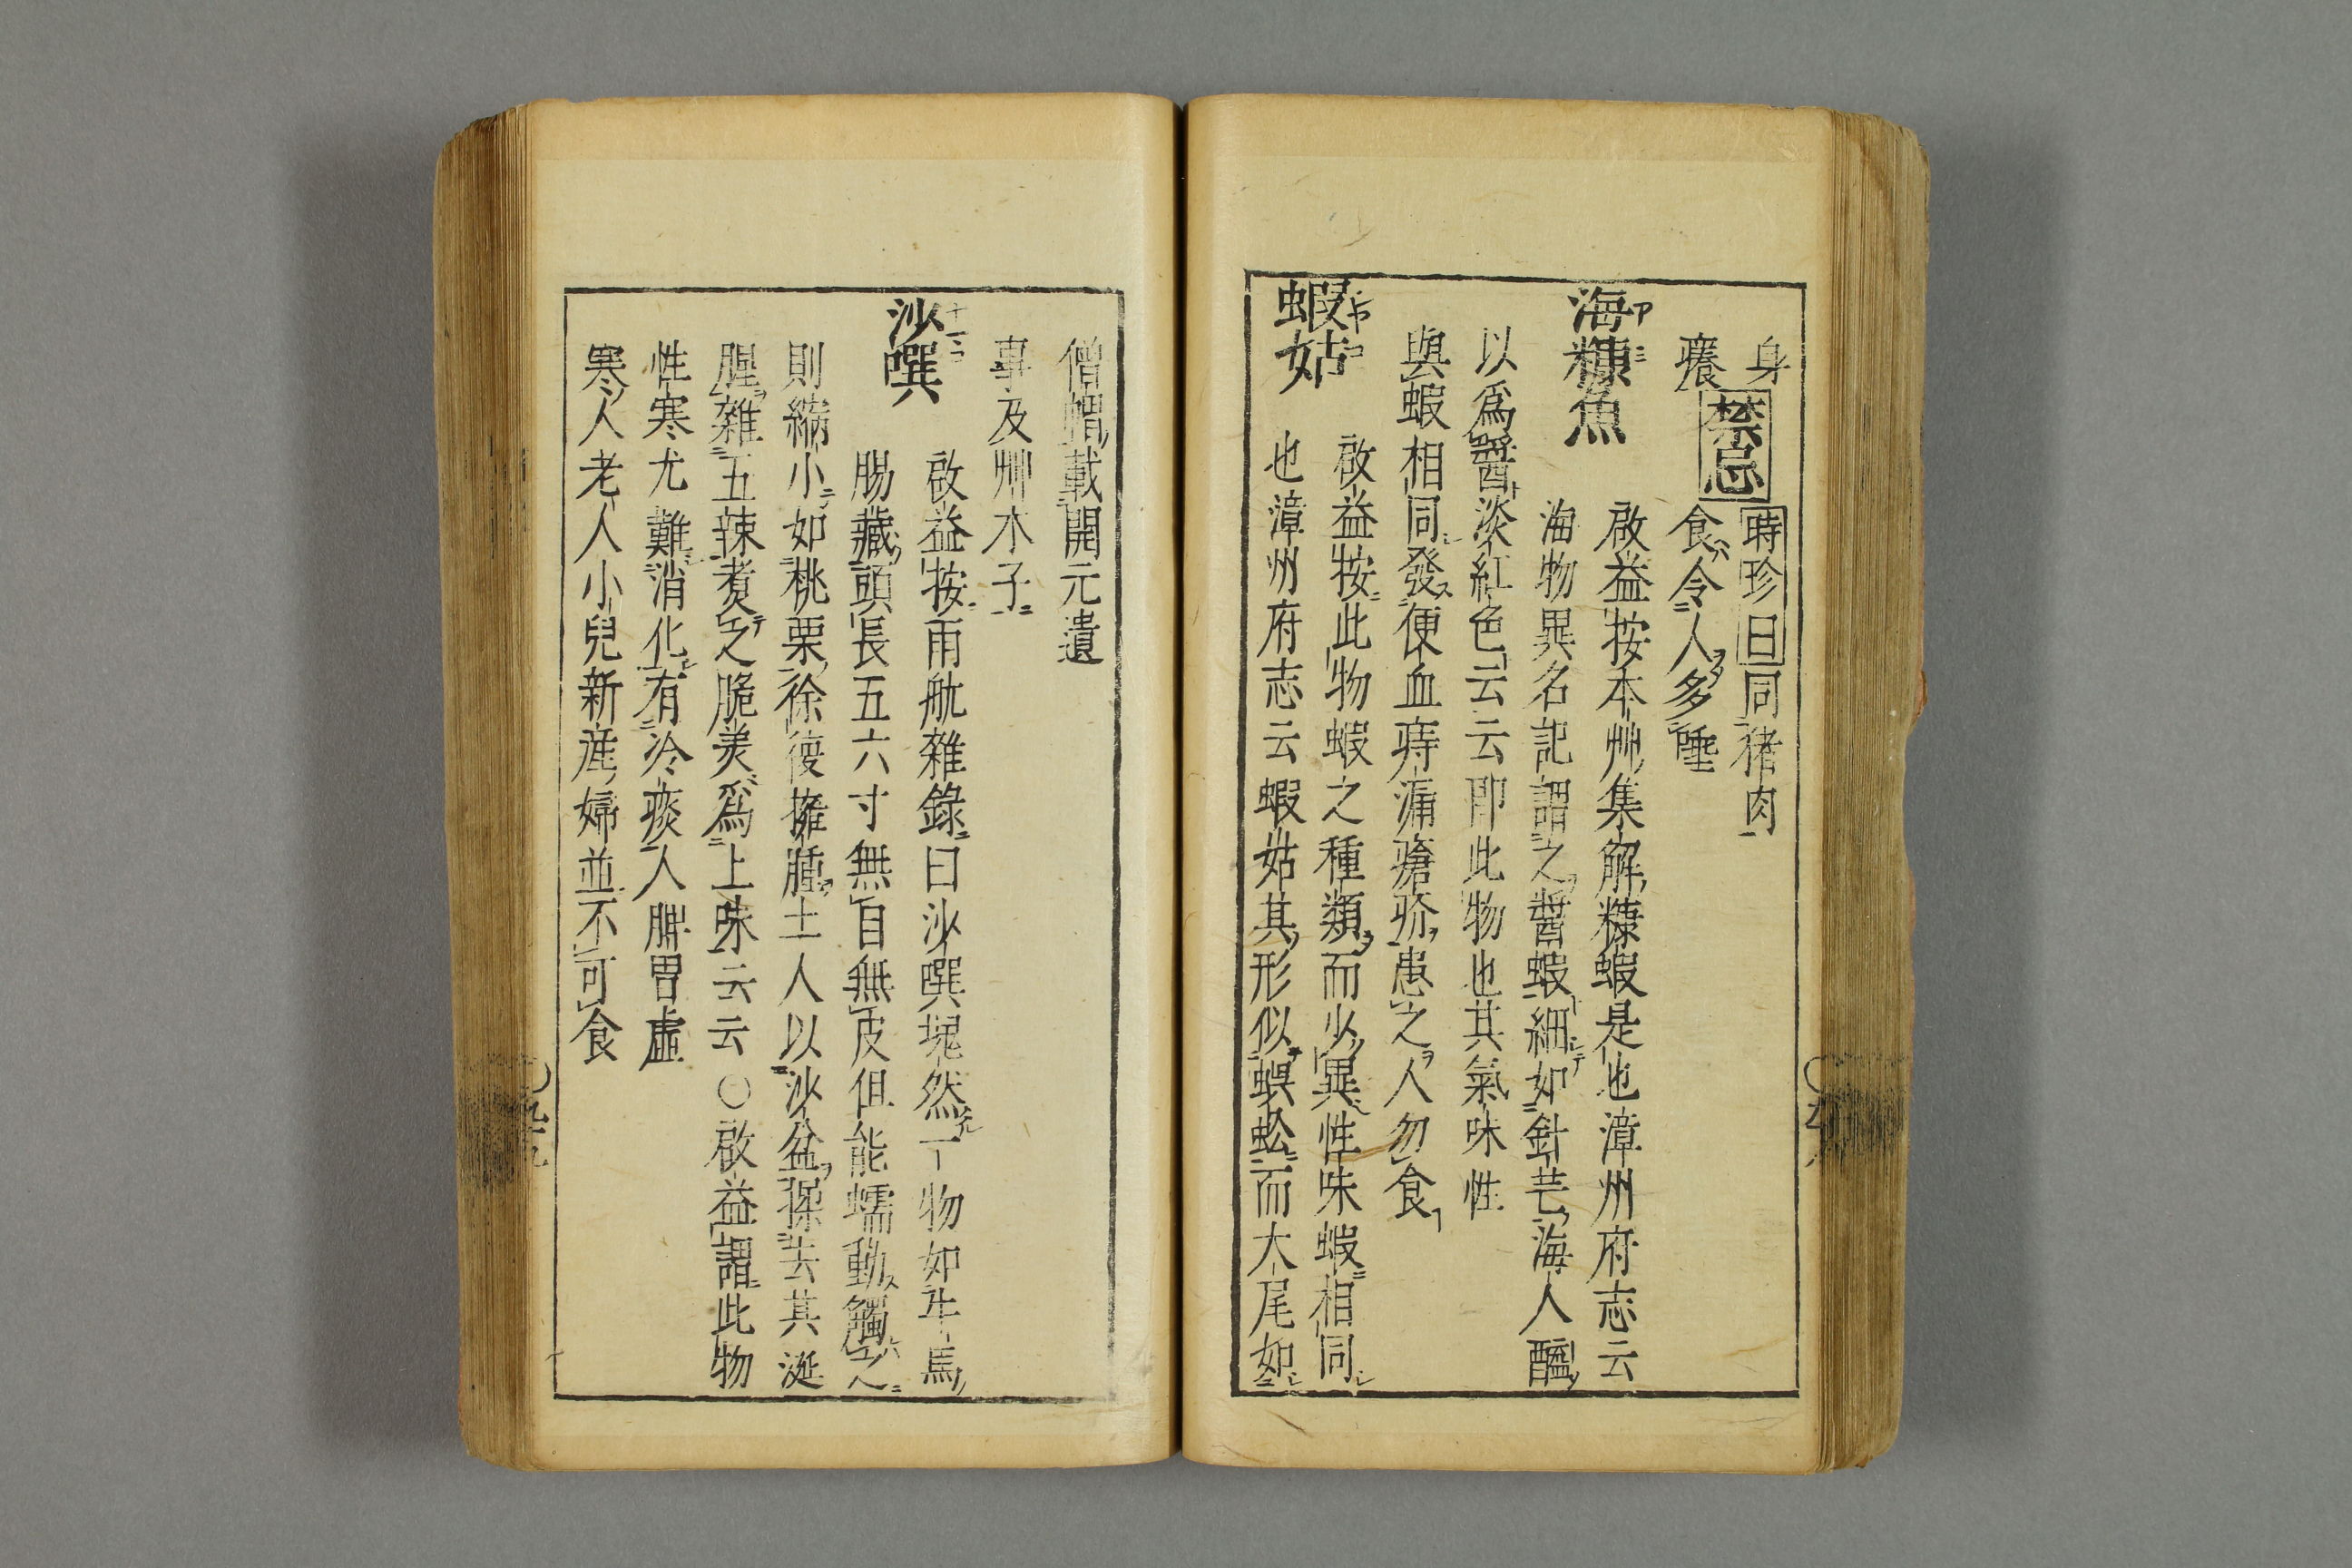 身
癢 禁忌 時珍曰同猪肉
食令人多唾
海糠魚
アミ
啟益按本艸集解糠蝦是也漳州府志云
海物異名記謂之醬蝦細如針芒海人醢
以爲醬淡紅色云云即此物也其氣味性
與蝦相同發便血痔漏瘡疥患之人勿食
蝦姑
シヤコ
啟益按此物蝦之種類而少異性味蝦相同
也漳州府志云蝦姑其形似蜈蚣而大尾如
僧帽載開元遺
事及艸木子
沙噀
ナマコ
啟益按雨航雜錄曰沙噀塊然一物如牛馬
腸藏頭長五六寸無目無皮但能蠕動觸之
則縮小如桃栗徐復擁腫土人以沙盆揉去其涎
腥雜五辣煑之脆美爲上味云云○啟益謂此物
性寒尤難消化有冷痰人脾胃虛
寒人老人小兒新產婦並不可食